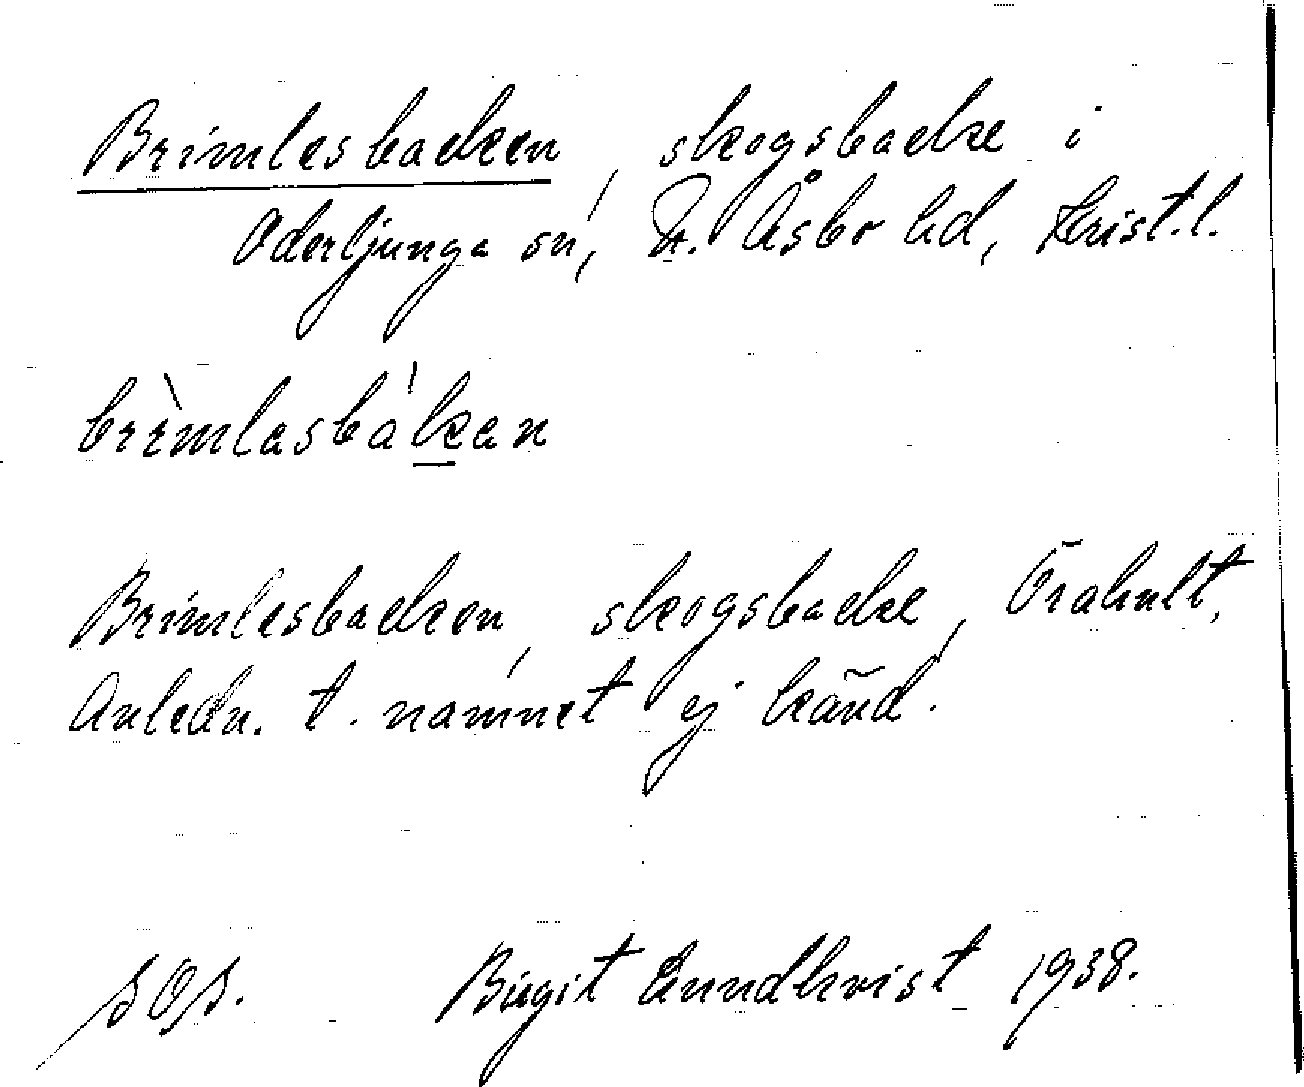 Brimlesbacken, skogsbacke i
Oderljunga sn, N. Åsbo hd, Krist. l.
brìmlasbákan
Brimlesbacken, skogsbacke, Örahult,
Anledn. t. namnet ej känd.
SOS. Birgit Lundkvist 1938.